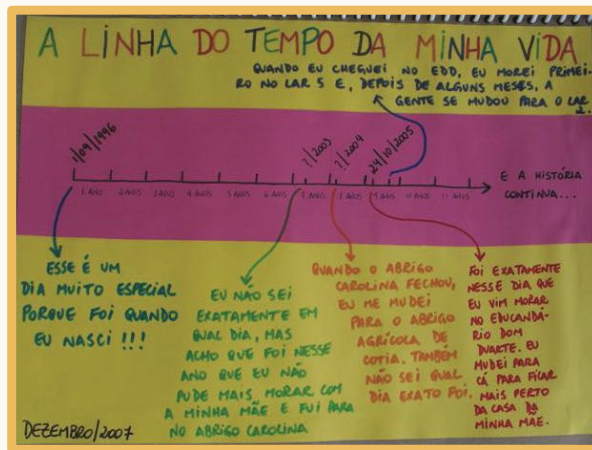 A LINHA DO TEMPO DA MINHA VIDA
QUANDO EU CHEGUEI NO EDD, EU MOREI PRIMEI-
RO NO LAR 5 E, DEPOIS DE ALGUNS MESES, A
GENTE SE MUDOU PARA O LAR
2.
1/09/1996
?/2003
?/2004
24/10/2005
E A HISTÓRIA
CONTINUA...
1 ANO
2 ANOS
3 ANOS
4 ANOS
5 ANOS
6 ANOS
7 ANOS
8 ANOS
9 ANOS
10 ANOS
11 ANOS
ESSE É UM
DIA MUITO ESPECIAL
PORQUE FOI QUANDO
EU NASCI!!!
EU NÃO SEI
EXATAMENTE EM
QUAL DIA, MAS
ACHO QUE FOI NESSE
ANO QUE EU NÃO
PUDE MAIS MORAR COM
A MINHA MÃE E FUI PARA
NO ABRIGO CAROLINA
QUANDO O ABRIGO
CAROLINA FECHOU,
EU ME MUDEI
PARA O ABRIGO
AGRÍCOLA DE
COTIA. TAMBÉM
NÃO SEI QUAL
DIA EXATO FOI.
FOI EXATAMENTE
NESSE DIA QUE
EU VIM MORAR
NO EDUCANDÁ-
RIO DOM
DUARTE. EU
MUDEI PARA
CÁ PARA FICAR
MAIS PERTO
DA CASA DA
MINHA MÃE.
DEZEMBRO/2007